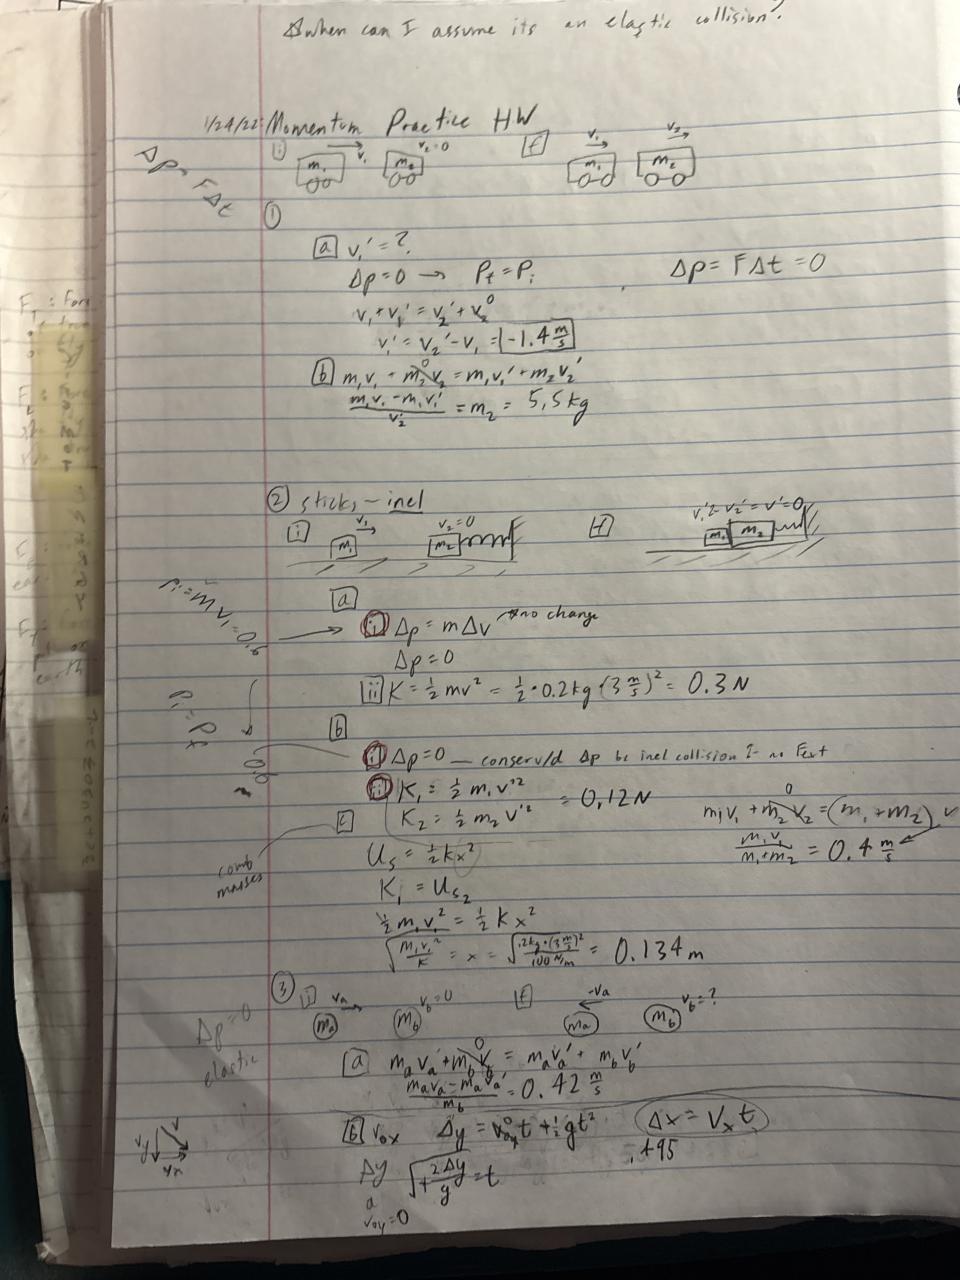 when can I assume its an elastic collision?
1/24/22 Momentum Practice HW
i m₁ v₁ m₂ v₂=0 f v₁ m₁ v₂ m₂
Δp = FΔt
①
a v₁' = ?
Δp=0 → Pf = Pi Δp = FΔt = 0
v₁ + v₁' = v₂' + v₂ 0
v₁' = v₂' - v₁ = -1.4 m/s
b m₁v₁ + m₂v₂ 0 = m₁v₁' + m₂v₂'
(m₁v₁ - m₁v₁')/v₂' = m₂ = 5,5 kg
② sticks - inel
i m₁ v₁ v₂=0 m₂ f v₁'=v₂'=v'=0 m₁ m₂
a
Pi = mv₁ = 0.6
i Δp = mΔv no change
Δp = 0
ii K = ½ mv² = ½ · 0.2kg (3 m/s)² = 0.3 N
b
i Δp=0 — conserv/d Δp bc inel collision & no Fext
ii K₁ = ½ m₁ v'² = 0,12 N
K₂ = ½ m₂ v'²
m₁v₁ + m₂v₂ 0 = (m₁+m₂) v
m₁v₁/(m₁+m₂) = 0.4 m/s
c
comb masses
Us = ½kx²
Ki = Us₂
½ m₁v₁² = ½ k x²
√(m₁v₁²/k) = x = √(.2kg·(3 m/s)²/100 N/m) = 0.134 m
③ i va ma vb=0 mb f -va ma mb vb=?
Δp=0
elastic
a mava + mbvb 0 = mava' + mbvb'
(mava - mava')/mb = 0.42 m/s
b vox Δy = voyt 0 + ½gt² Δx = Vxt
.495
Δy √(+2Δy/g) = t
a
voy = 0
vy v vx